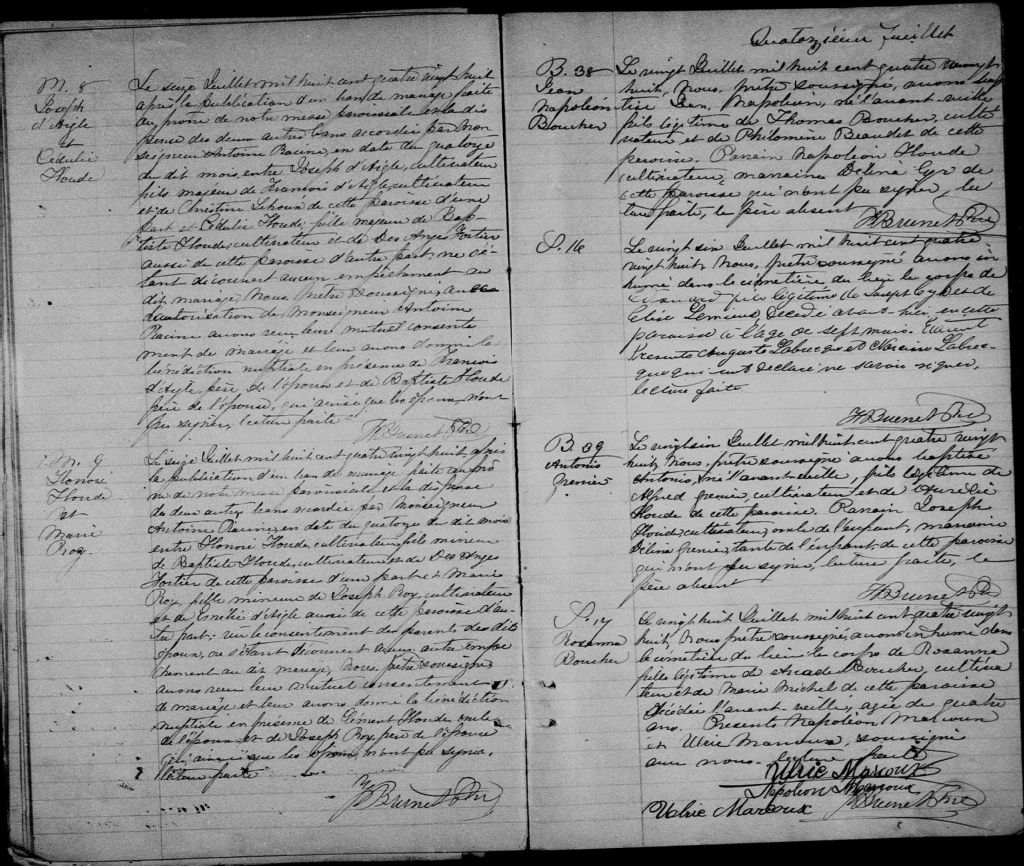 M. 8
Joseph
d'Aigle
et
Cédulie
Houde
Le seize Juillet mil huit cent quatre vingt huit
après la publication d'un ban de mariage faite
au prône de notre messe paroissiale et la dis
pense des deux autres bans accordée par Mon
seigneur Antoine Racine, en date du quatorze
du dit mois, entre Joseph d'Aigle, cultivateur
fils majeur de François d'Aigle, cultivateur
et de Christine Lehoux de cette paroisse d'une
part et Cédulie Houde, fille majeure de Bap-
tiste Houde, cultivateur et de Des Anges Fortier
aussi de cette paroisse d'autre part; ne s'é-
tant découvert aucun empêchement au
dit mariage, Nous, Prêtre Soussigné, avec
l'autorisation de Monseigneur Antoine
Racine avons reçu leur mutuel consente
ment de mariage et leur avons donné la
bénédiction nuptiale en présence de François
d'Aigle, père de l'époux et de Baptiste Houde
père de l'épouse, qui ainsi que les époux, n'ont
pu signer, lecture faite
JBrunet Ptre
M. 9
Honoré
Houde
et
Marie
Roy
Le seize Juillet mil huit cent quatre vingt huit après
la publication d'un ban de mariage faite au prô
ne de notre messe paroissiale et la dispense
de deux autres bans accordée par Monseigneur
Antoine Racine, en date du quatorze du dit mois
entre Honoré Houde, cultivateur, fils mineur
de Baptiste Houde, cultivateur et de Des Anges
Fortier de cette paroisse d'une part et Marie
Roy, fille mineure de Joseph Roy, cultivateur
et de Emélie d'Aigle aussi de cette paroisse d'au-
tre part; vu le consentement des parents des dits
époux, ne s'étant découvert aucun autre empê
chement au dit mariage, Nous, prêtre soussigné
avons reçu leur mutuel consentement
de mariage et leur avons donné la bénédiction
nuptiale en présence de Clément Houde oncle
de l'époux et de Joseph Roy, père de l'épouse
qui ainsi que les époux, n'ont pu signer.
lecture faite
JBrunet Ptre
Quatorzième Juillet
B. 38
Jean
Napoléon
Boucher
Le vingt Juillet mil huit cent quatre vingt
huit, Nous, prêtre soussigné, avons bap
tisé Jean, Napoléon, né l'avant veille
fils légitime de Thomas Boucher, culti
vateur et de Philomène Beaudet de cette
paroisse. Parrain Napoléon Houde
cultivateur, marraine Délina Cyr de
cette paroisse qui n'ont pu signer, lec
ture faite, le père absent
JBrunet Ptre
S. 16
Le vingt six Juillet mil huit cent quatre
vingt huit, Nous, prêtre soussigné avons in
humé dans le cimetière du lieu le corps de
fils légitime de Joseph et de
Lemieux, décédé avant hier, en cette
paroisse à l'âge de sept mois. Etaient
présents Auguste Labrecque et Labrec-
que qui ont déclaré ne savoir signer,
lecture faite
JBrunet Ptre
B. 39
Antonio
Grenier
Le vingt six Juillet mil huit cent quatre vingt
huit, Nous, prêtre soussigné avons baptisé
Antonio, né l'avant veille, fils légitime de
Alfred Grenier, cultivateur et de Aurélie
Houde de cette paroisse. Parrain Joseph
Houde, cultivateur, oncle de l'enfant, marraine
Délina Grenier, tante de l'enfant, de cette paroisse
qui n'ont pu signer, lecture faite, le
père absent
JBrunet Ptre
S. 17
Rosanna
Boucher
Le vingt huit Juillet mil huit cent quatre vingt
huit, Nous prêtre soussigné, avons inhumé dans
le cimetière du lieu le corps de Rosanna
fille légitime de Arcade Boucher, cultiva
teur et de Marie Michel de cette paroisse
décédée l'avant veille, agée de quatre
ans. Présents Napoléon Marcoux
et Ulric Marcoux, soussigné
avec nous. lecture faite
Ulric Marcoux
Napoléon Marcoux
Ulric Marcoux
JBrunet Ptre